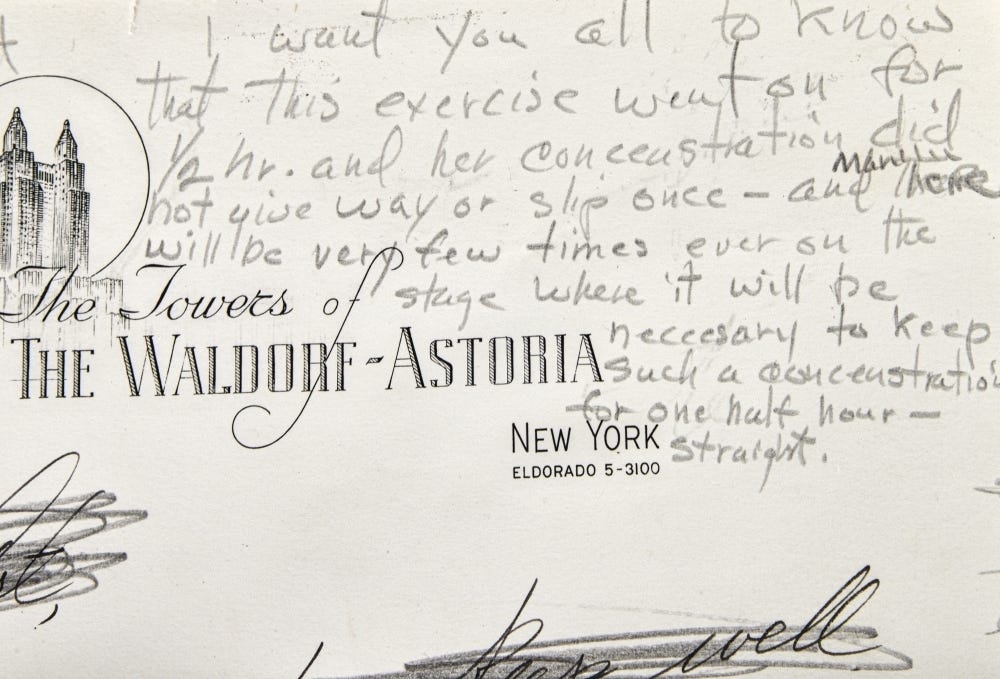 I want you all to know
that this exercise went on for
1/2 hr. and her conceenstration did
not give way or slip once — and there
will be very few times ever on the
stage where it will be
neccesary to keep
such a conceenstration
for one half hour —
straight.
The Towers of
THE WALDORF-ASTORIA
NEW YORK
ELDORADO 5-3100
keep well